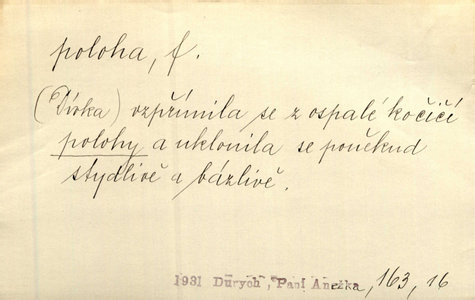 poloha, f.
(Dívka) vzpřímila se z ospalé kočičí
polohy a uklonila se poněkud
stydlivě a bázlivě.
1931 Durych, Paní Anežka, 163, 16